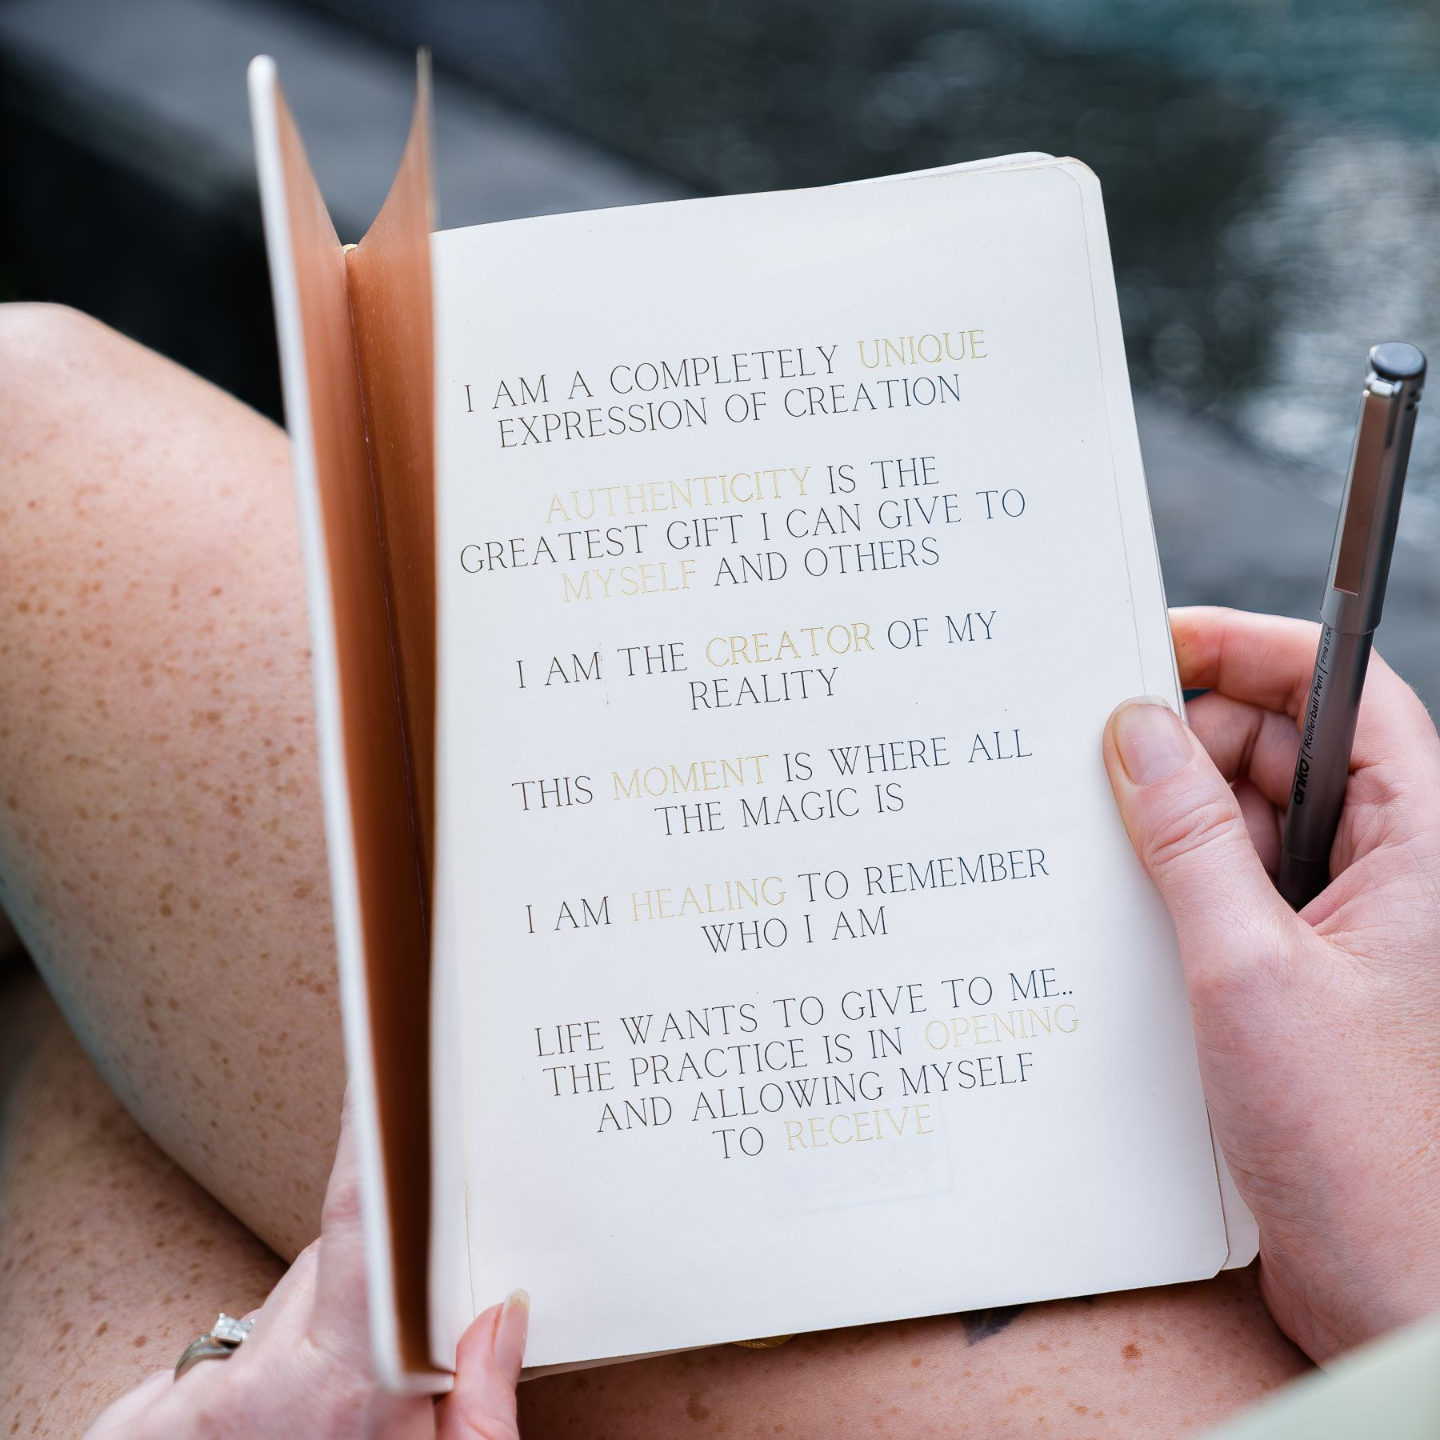 I AM A COMPLETELY UNIQUE
EXPRESSION OF CREATION
AUTHENTICITY IS THE
GREATEST GIFT I CAN GIVE TO
MYSELF AND OTHERS
I AM THE CREATOR OF MY
REALITY
THIS MOMENT IS WHERE ALL
THE MAGIC IS
I AM HEALING TO REMEMBER
WHO I AM
LIFE WANTS TO GIVE TO ME..
THE PRACTICE IS IN OPENING
AND ALLOWING MYSELF
TO RECEIVE
anko | Rollerball Pen | Fine 0.5